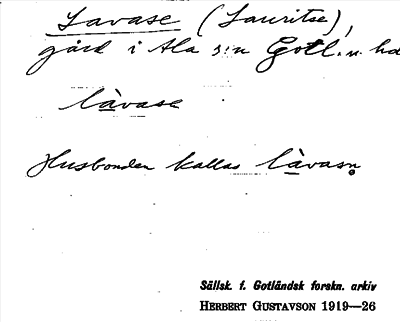 Lavase (Lauritse),
gård i Ala s:n Gotl. n. hd
làvase
Husbonden kallas làvasn
Sällsk. f. Gotländsk forskn. arkiv
HERBERT GUSTAVSON 1919—26